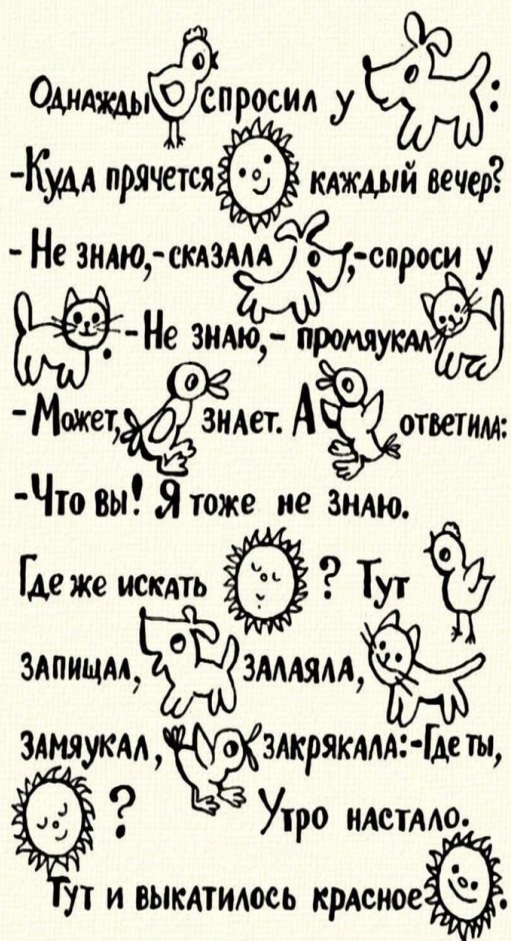 Однажды спросил у :
-Куда прячется каждый вечер?
- Не знаю,- сказала ,-спроси у
. -Не знаю,- промяукал
-Может, знает. А ответила:
-Что вы! Я тоже не знаю.
Где же искать ? Тут
запищал, залаяла,
замяукал, закрякала:-Где ты,
? Утро настало.
Тут и выкатилось красное .